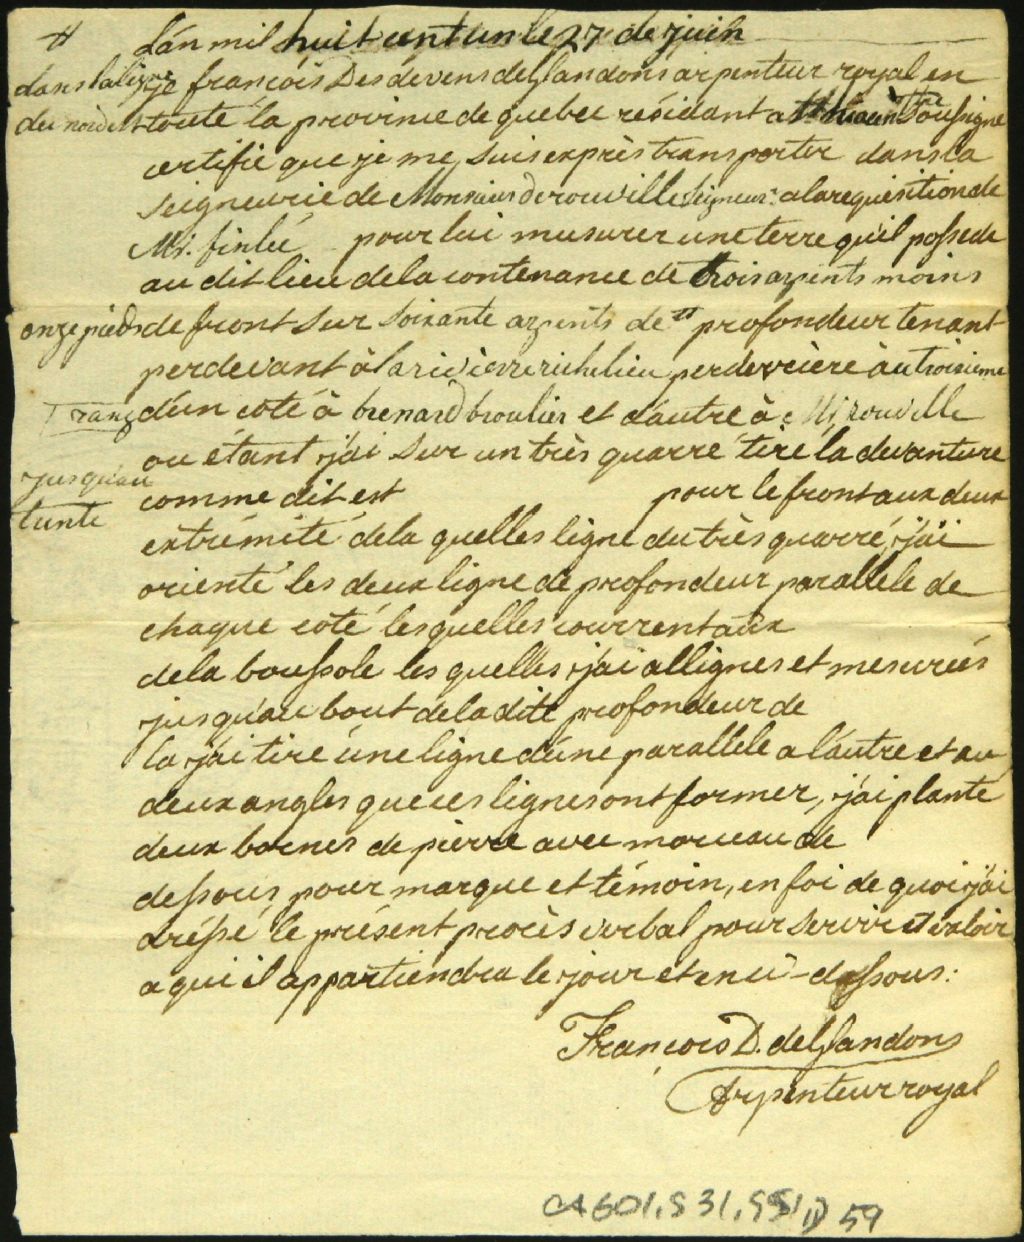 #
L'an mil huit cent un le 27 de juin
dans la ligne
je françois Desdevens de Glandons arpenteur royal en
du nord est
toute la province de quebec résidant a soussigne
certifie que je me suis exprès transporter dans la
seigneurie de Monsieur de rouville seigneur a la requisition de
Mr. finlé pour lui musurer une terre qu'il possede
au dit lieu de la contenance de trois arpents moins
onze pieds de front sur soixante arpents de # profondeur tenant
perdevant à la rivierre richelieu perderrière àu troisieme
rang d'un coté à brenard broulier et d'autre à Mr, rouville
ou étant j'ai sur un très quarre tiré la devanture
jusqu'au
comme dit est pour le front aux deux
tunte
extrémité de la quelles ligne du très quarré, j'ai
orienté les deux ligne de profondeur parallele de
chaque coté lesquelles courrent aux
de la boussole les quelles j'ai allignes et mesurées
jusqu'au bout de la dite profondeur de
la j'ai tiré une ligne d'une parallele a l'autre et au
deux angles que ces lignes ont former, j'ai planté
deux bornes de pierre avec morceau de
dessous pour marque et témoin, en foi de quoi j'ai
dréssé le présent procès verbal pour servir et valoir
a qui il appartiendra le jour et en ci-dessous:
François D. de Glandons
Arpenteur royal
CA601,S31,SS1,D59